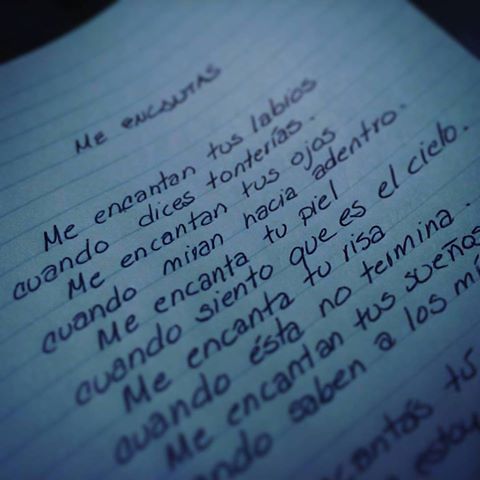 Me encantas
Me encantan tus labios
cuando dices tonterías.
Me encantan tus ojos
cuando miran hacia adentro.
Me encanta tu piel
cuando siento que es el cielo.
Me encanta tu risa
cuando ésta no termina.
Me encantan tus sueños
cuando saben a los
encantas tú
estoy